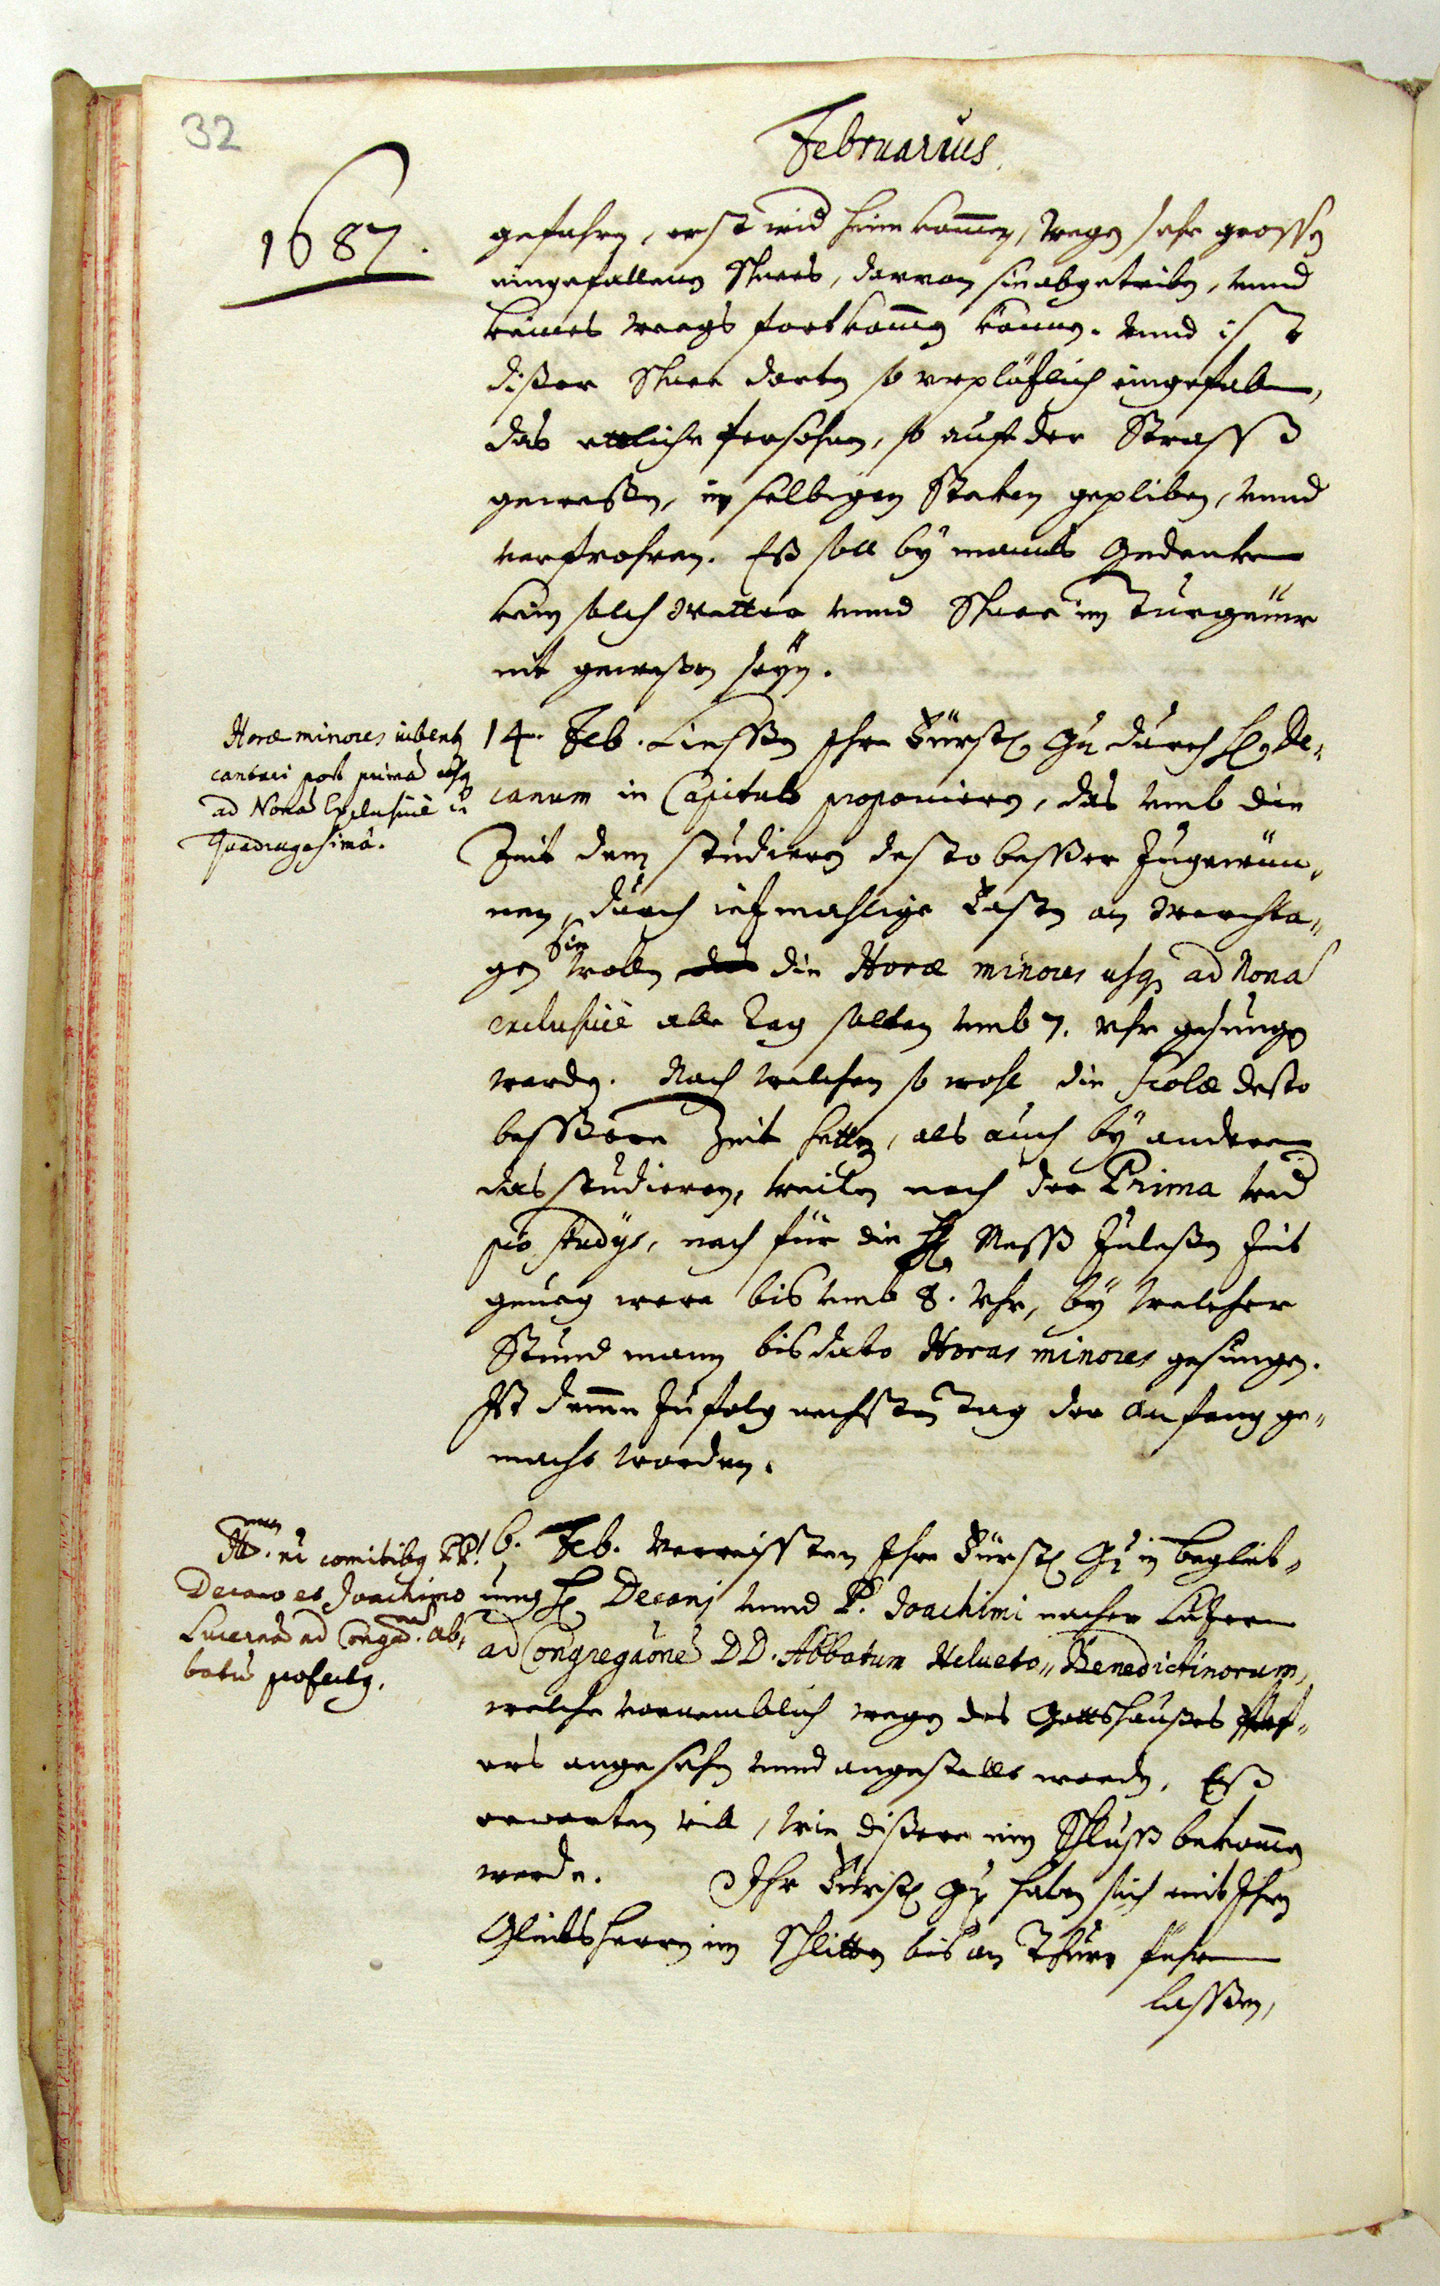 32
Februarius.
1687.
gefahren, erst wid heim kommen, wegen sehr grossen
eingefallenen Schnees, darvon sie abgetriben, vnnd
keines weegs fortkommen können. Vnnd ist
dißer Schnee dorten so vrplözlich eingefallen,
das ettliche Persohnen, so auf der Strassß
geweßen, in selbigen steken gepliben, vnnd
verfrohren. Eß soll bÿ manns Gedenken
kein solch Wetter vnnd Schnee im Turgeüw
nit geweßen seÿn.
Horæ minores iubentur
cantari post primã usq
ad Nonã Exclusiuè in
Quadragesimâ.
14. Feb. Liessßen Ihre Fürstl. Gn. durch H. De-
canum in Capitulo proponieren, das vmb die
Zeit dem studieren desto besßer zugewün-
nen, durch iezmahlige Fasten an Werchta-
gen Sie wollen die Horæ minores usq ad Nonã
exclusiuè alle Tag solten vmb 7. vhr gesungen
werden. Nach welchen so wohl die Scholæ desto
bessßere Zeit hetten, als auch bÿ anderen
das studieren, weilen nach der Prima wed
pro studÿs, noch für die H. Messß zuleßen Zeit
genueg were bis vmb 8. Vhr, bÿ welcher
Stund mann bis dato Horas minores gesungen.
Ist demme zufolg nechsten Tag der Anfang ge-
macht worden.
Decano et Joachimo
Lucernã ad Congãonem Ab-
batũ
16. Feb. Verreissten Ihre Fürstl. Gn. in begleit-
ung H. Decani vnnd P. Joachimi nacher Luzern
ad Congregãonẽ DD. Abbatum Helueto-Benedictinorum,
welche vornemblich wegen des Gottshaußes Pfef-
ers angesehen vnnd angestellt worden. Eß
erwarten will, wie dißere ein Schlußß bekommen
werde. Ihr Fürstl. Gn. haben sich mit Ihren
Gleitsherren im Schlitten bis an Thurn führen
lassßen,